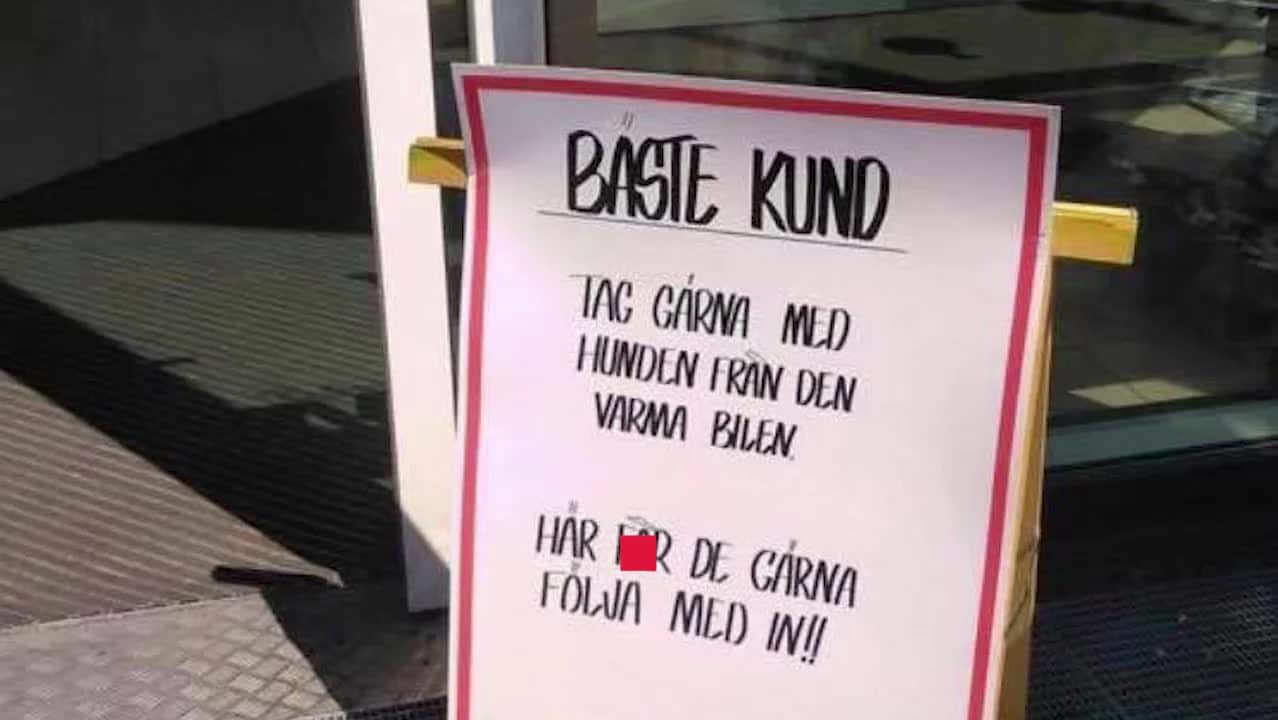 BÄSTE KUND
TAG GÄRNA MED
HUNDEN FRÅN DEN
VARMA BILEN.
HÄR DE GÄRNA
FÖLJA MED IN!!